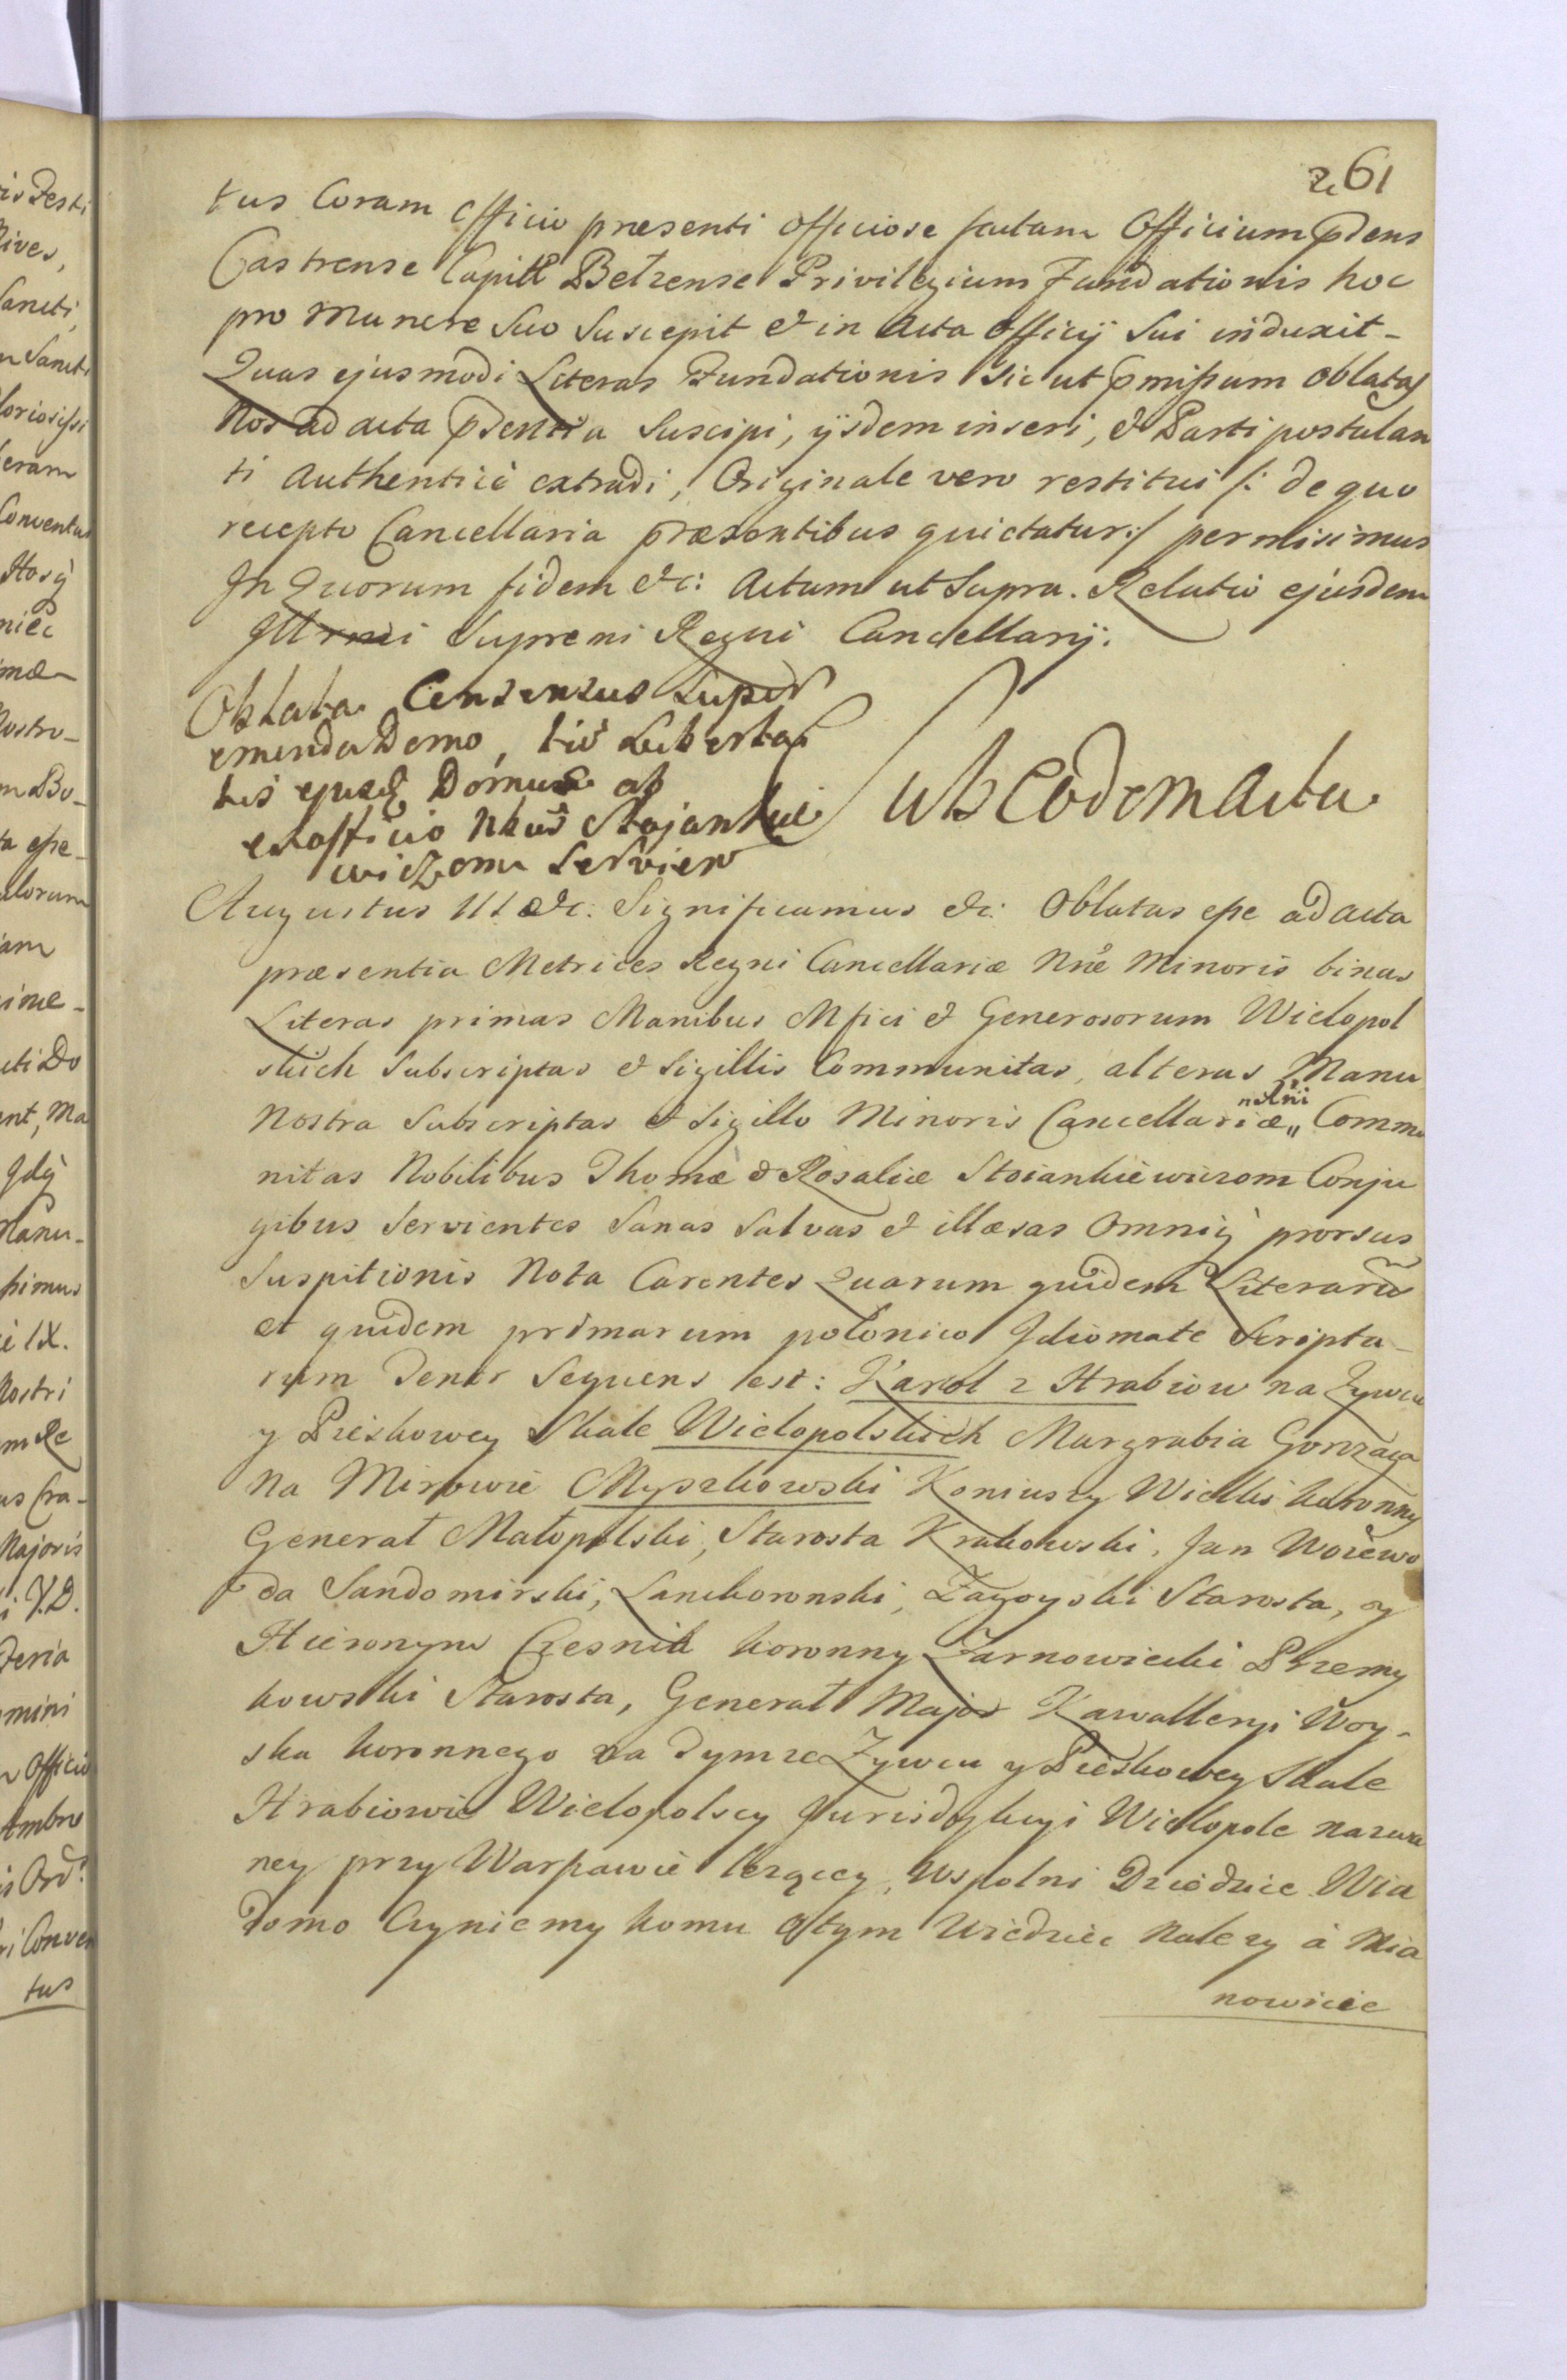 261
tus Coram Officio præsenti officiose factam Officium pdens
Castrense Capitl Bełzense Privilegium Fundationis hoc
pro munere Suo Suscepit & in Acta Officij Sui induxit -
Quas ejusmodi Literas Fundationis Sic ut pmißum oblatas
Nos ad acta pdentia Suscipi, ijsdem inseri, & Parti postulan
ti Authenticè extradi, Originale vero restitui /: de quo
recepto Cancellaria præsentibus quictatur :/ permisimus
In Quorum fidem &c: Actum ut Supra. Relatio ejusdem
Illrmi Supremi Regni Cancellarij.
Oblata Consensus Super
emenda Domo, tiò Liberta
tis ejusq Domus ab
exofficio Nbus Stojankie
wiczom Servien
Sub Eodem Actu
Augustus III &c: Significamus &c: Oblatas eße ad acta
præsentia Metrices Regni Cancellariæ Nræ Minoris binas
Literas primas Manibus Mfici & Generosorum Wielopol
skich Subscriptas & Sigillis Communitas, alteras Manu
Nostra Subscriptas & Sigillo Minoris Cancellariæ „ Commu
nitas Nobilibus Thomæ & Rosaliæ Stoiankiewiczom Conju
gibus Servientes Sanas Salvas & illæsas Omniq prorsus
Suspitionis Nota Carentes Quarum quidem Literarū
et quidem primarum polonico Idiomate Scripta-
rum Tenor Sequens est: Karol z Hrabiow na Zywcu
y Pieskowey Skale Wielopolskich Margrabia Gonzaga
na Mirowie Myszkowski Koniuszy Wielki koronny
Generał Małopolski, Starosta Krakowski, Jan Woiewo
da Sandomirski, Lanckoronski, Zagoyski Starosta, y
Hieronym Czesnik koronny Żarnowiecki Przemy
kowski Starosta, Generał Major Kawalleryi Woy-
ska koronnego na Tymze Zywcu y Pieskowey Skale
Hrabiowie Wielopolscy Jurisdykcyi Wielopole nazwa
ney przy Warßawie leżącey, Wspolni Dziedzice Wia
domo Czyniemy komu o tym Wiedziec Nalezy à Mia
nowicie